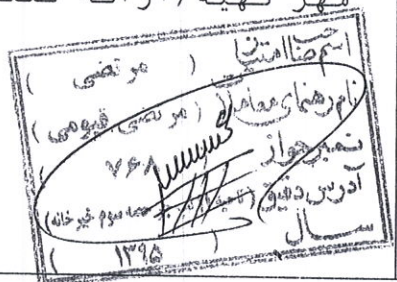 مهر تهیه
اسم صاحب امتیاز ( مرتضی )
نام رهنمای معاملات ( مرتضی قیومی )
نمبر جواز ۷۶۸
آدرس دقیق ( سوم خیرخانه )
ســال ( ۱۳۹۵ )